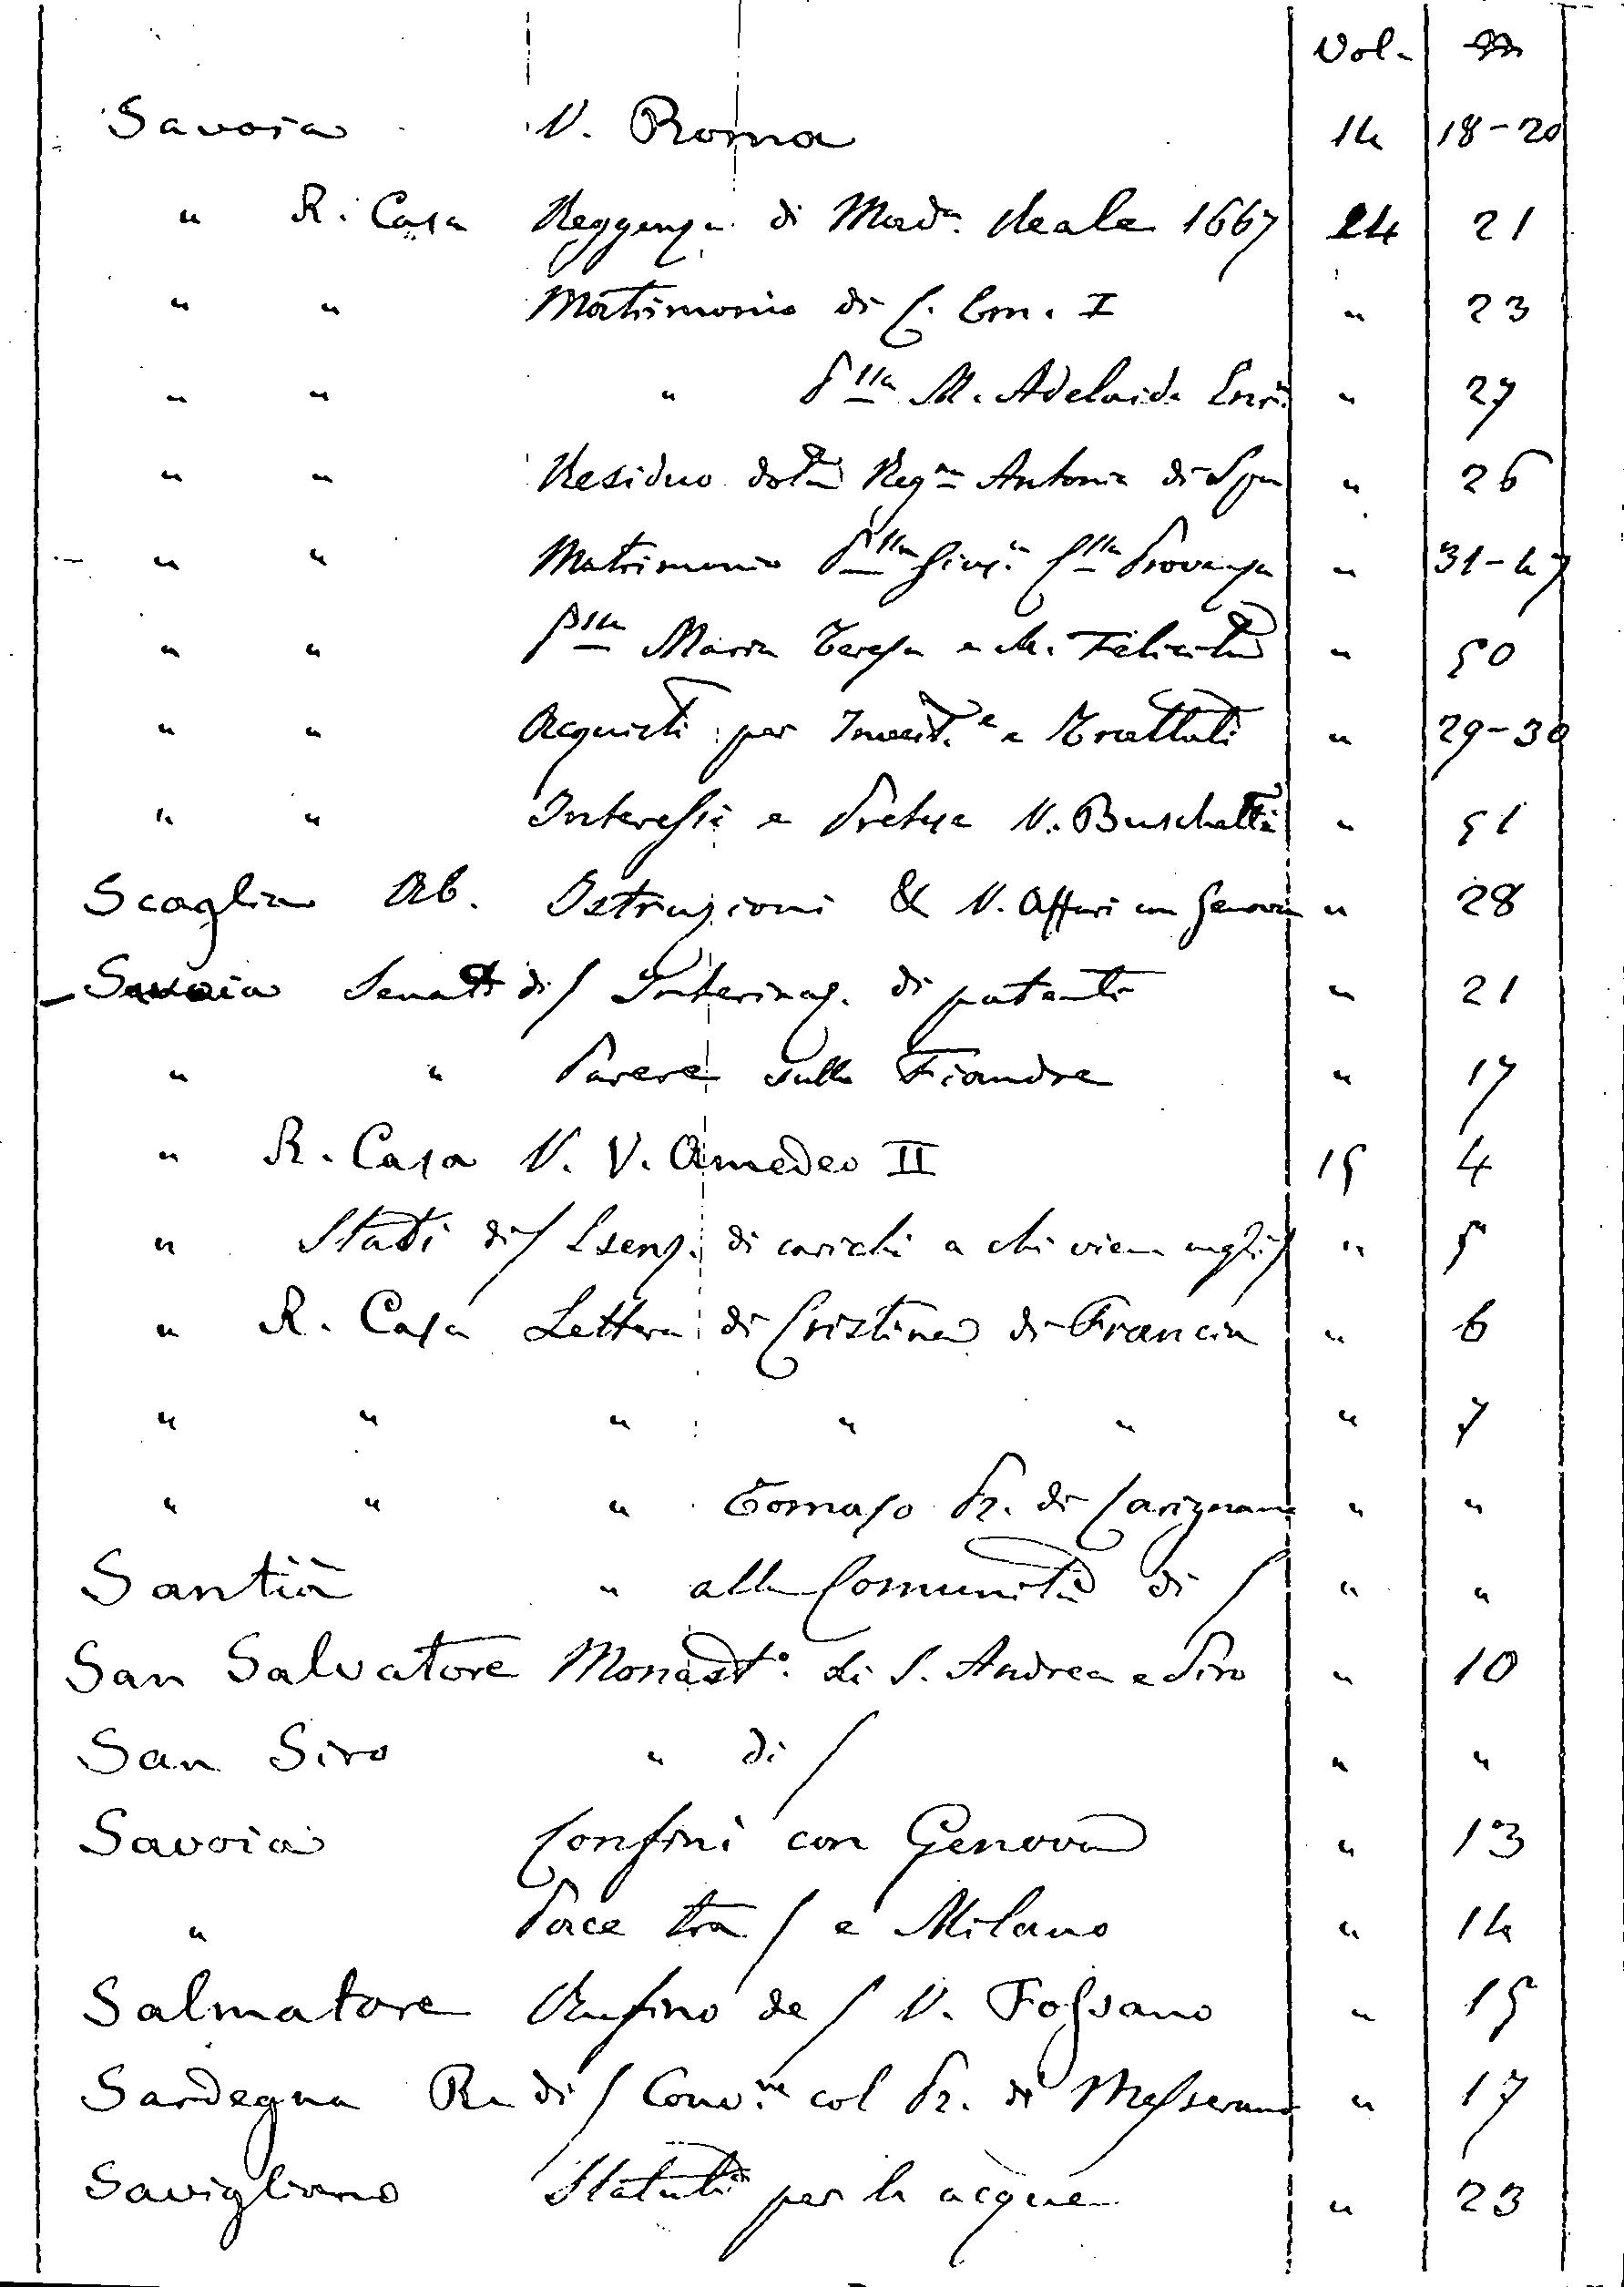 Vol.
Savoia V. Roma 14 18-20
" R. Casa Reggenza di Mad.a Reale 1667 24 21
" " Matrimonio di C. Em. I " 23
" " " P.lla M. Adelaide Enr. " 27
" " Residuo dote Reg.na Antonia di Spa " 26
" " Matrimonio P.lla Gius.a C.lla Provenza " 31-47
" " P.lla Maria Teresa e M. Felicita " 50
" " Acquisti per Invest.e e Trattati " 29-30
" " Interessi e Pretese V. Buschetti " 51
Scaglia Ab. Istruzioni & V. Affari con Genova " 28
Savoia Senato di S Interinaz. di patenti " 21
" " Parere sulle Fiandre " 17
" R. Casa V. V. Amedeo II 15 4
" Stati di S Esenz. di carichi a chi viene negli S " 5
" R. Casa Lettera di Cristina di Francia " 6
" " " " " " 7
" " " Tomaso Pr. di Carignano " "
Santià " alla Comunità di S " "
San Salvatore Monast.o di S. Andrea e Siro " 10
San Siro " di S " "
Savoia Confini con Genova " 13
" Pace tra S e Milano " 14
Salmatore Rufino de S V. Fossano " 15
Sardegna Re di S Conv.ne col Pr. di Messerano " 17
Savigliano Statuti per le acque " 23